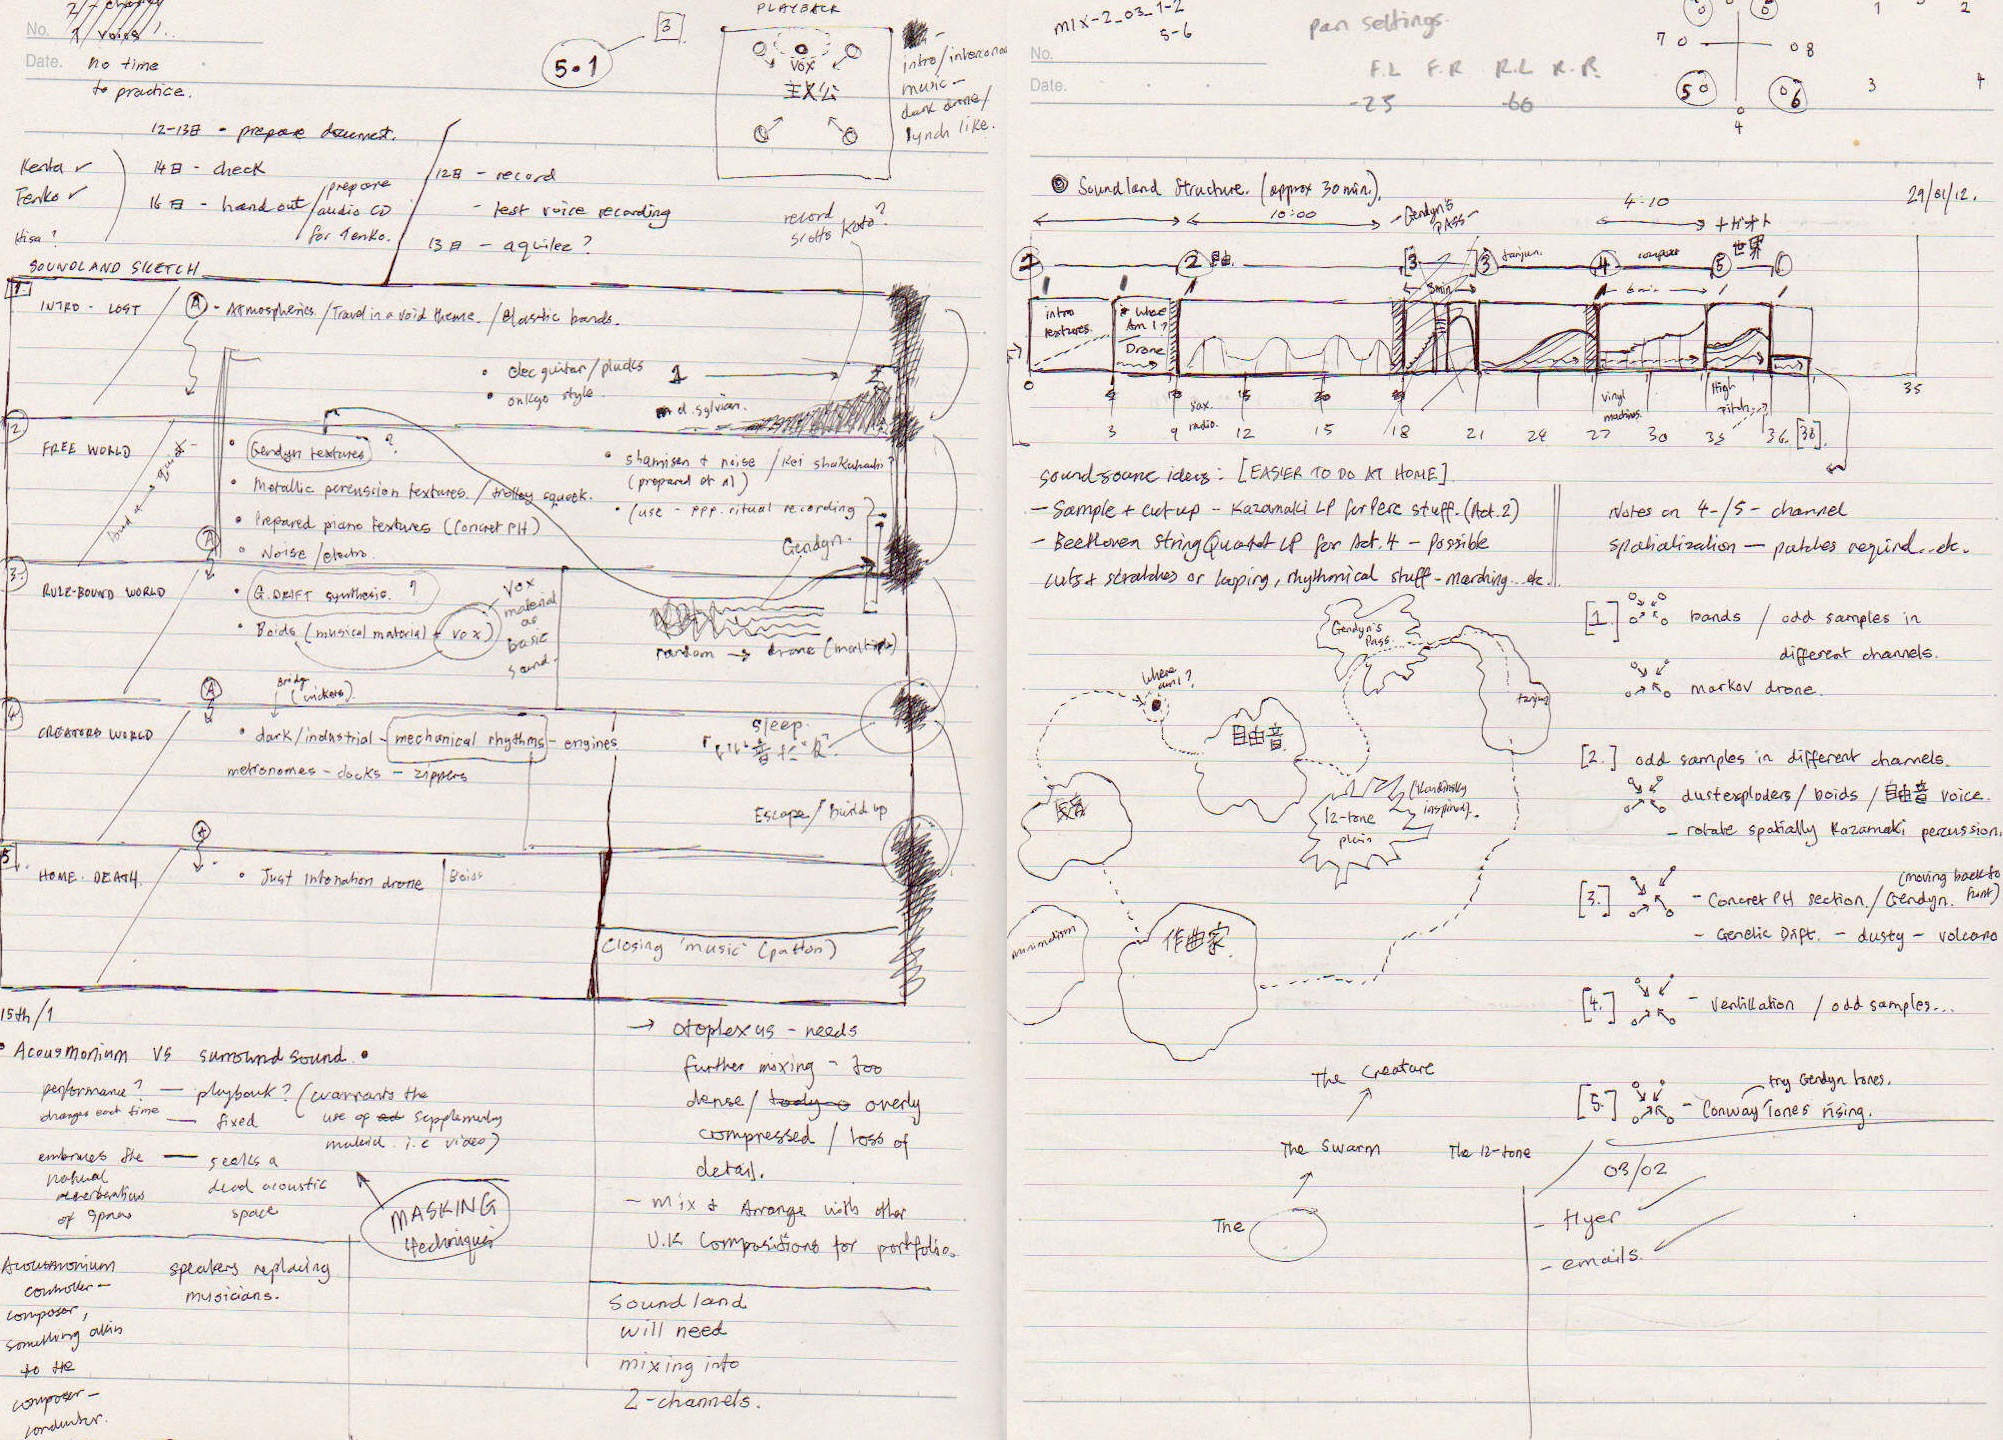 No.
Date.
no time
to practice.
5.1
[3]
PLAYBACK
VOX
主人公
intro/
music —
dark drone/
lynch like.
12-13日 - prepare document.
14日 - check
16日 - hand out / prepare
audio CD
for Tenko.
Kenta ✓
Tenko ✓
Hisa?
12日 - record
- test voice recording
13日 -
record
Koto?
SOUNDLAND SKETCH
1
INTRO - LOST
A - Atmospherics. / Travel in a void theme. / Elastic bands.
• elec guitar / plucks
• onkyo style.
1
2
d. sylvian.
2
FREE WORLD
• Gendyn textures ?
• Metallic percussion textures. / trolley squeek.
• Prepared piano textures (Concret PH)
A
• Noise / electro.
• shamisen + noise / Kei shakuhachi?
(prepared at AI)
• (use - ppp. ritual recording)
Gendyn.
3.
RULE-BOUND WORLD
• G.DRIFT synthesis. ?
• Boids (musical material + vox)
VOX
material
as
basic
sound.
random → drone (multiple)
4
CREATORS WORLD
A
Bridge
(crickets)
• dark/industrial - mechanical rhythms - engines
metronomes - clocks - zippers
sleep.
Escape / build up
5.
HOME. DEATH.
A
• Just Intonation drone
Boids
Closing 'music' (patton)
15th/1
• Acousmonium VS surround sound. •
performance? — playback? (warrants the
changes each time — fixed
use of supplementary
material. i.e video)
embraces the — seeks a
natural dead acoustic
reverberations space
of space
MASKING
techniques
Acousmonium
controller —
composer,
something akin
to the
composer —
conductor.
speakers replacing
musicians.
→ otoplexus - needs
further mixing - too
dense / overly
compressed / loss of
detail.
- mix & Arrange with other
U.K Compositions for portfolio.
Soundland
will need
mixing into
2-channels.
mix-2_03_1-2
5-6
No.
Date.
pan settings.
F.L F.R R.L R.R.
-25 -60
7 8
5 6
4
1 2
3 4
Soundland Structure. (approx 30min.).
29/01/12.
10:00
Gendyn's
PASS
4:10
2 自由.
3
3 tanjun.
4
5 世界
3min
6 min
intro
textures.
* Where
Am I?
Drone
0
15
35
3 9 12 15 18 21 24 27 30 33 36. [38].
sax.
radio.
vinyl
machines.
High
Pitch
Sound-source ideas: [EASIER TO DO AT HOME].
- Sample + cut up - Kazamaki LP for Perc stuff. (Act. 2)
- Beethoven String Quartet LP for Act. 4 - Possible
cuts + scratches or looping, rhythmical stuff - marching.. etc.
Notes on 4-/5- channel
spatialization — patches required...etc.
Gendyn's
Pass.
Where
am I?
自由音
tanjun
12-tone
plain
(Kandinsky
inspired).
minimalism
作曲家
[1.] bands / odd samples in
different channels.
markov drone.
[2.] odd samples in different channels.
dustexploders / boids / 自由音 voice.
- rotate spatially Kazamaki percussion.
(moving back to
front)
[3.] - Concret PH section. / Gendyn.
- Genetic Drift. - dusty - volcano
[4.] - Ventillation / odd samples...
try Gendyn tones.
[5.] - Conway Tones rising.
The Creature
The Swarm
The 12-tone
The
03/02
- flyer
- emails.